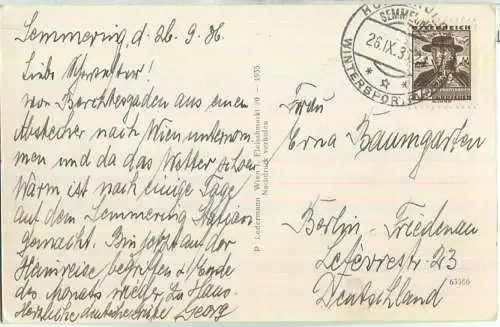 Semmering, d. 26. 9. 36
Liebe Schwester!
von Berchtesgaden aus einen
Abstecher nach Wien unternom-
men und da das Wetter schön
Warm ist noch einige Tage
auf dem Semmering Station
gemacht. Bin jetzt auf der
Heimreise begriffen & Ende
des Monats wieder zu Haus
Herzliche Georg
P. Ledermann Wien I. Fleischmarkt 20 - 1935
Nachdruck verboten
SEMMERING
26.IX.3
WINTERSPORT
ÖSTERREICH
Frau
Erna Baumgarten
Berlin-Friedenau
Lefevrestr. 23
Deutschland
63386